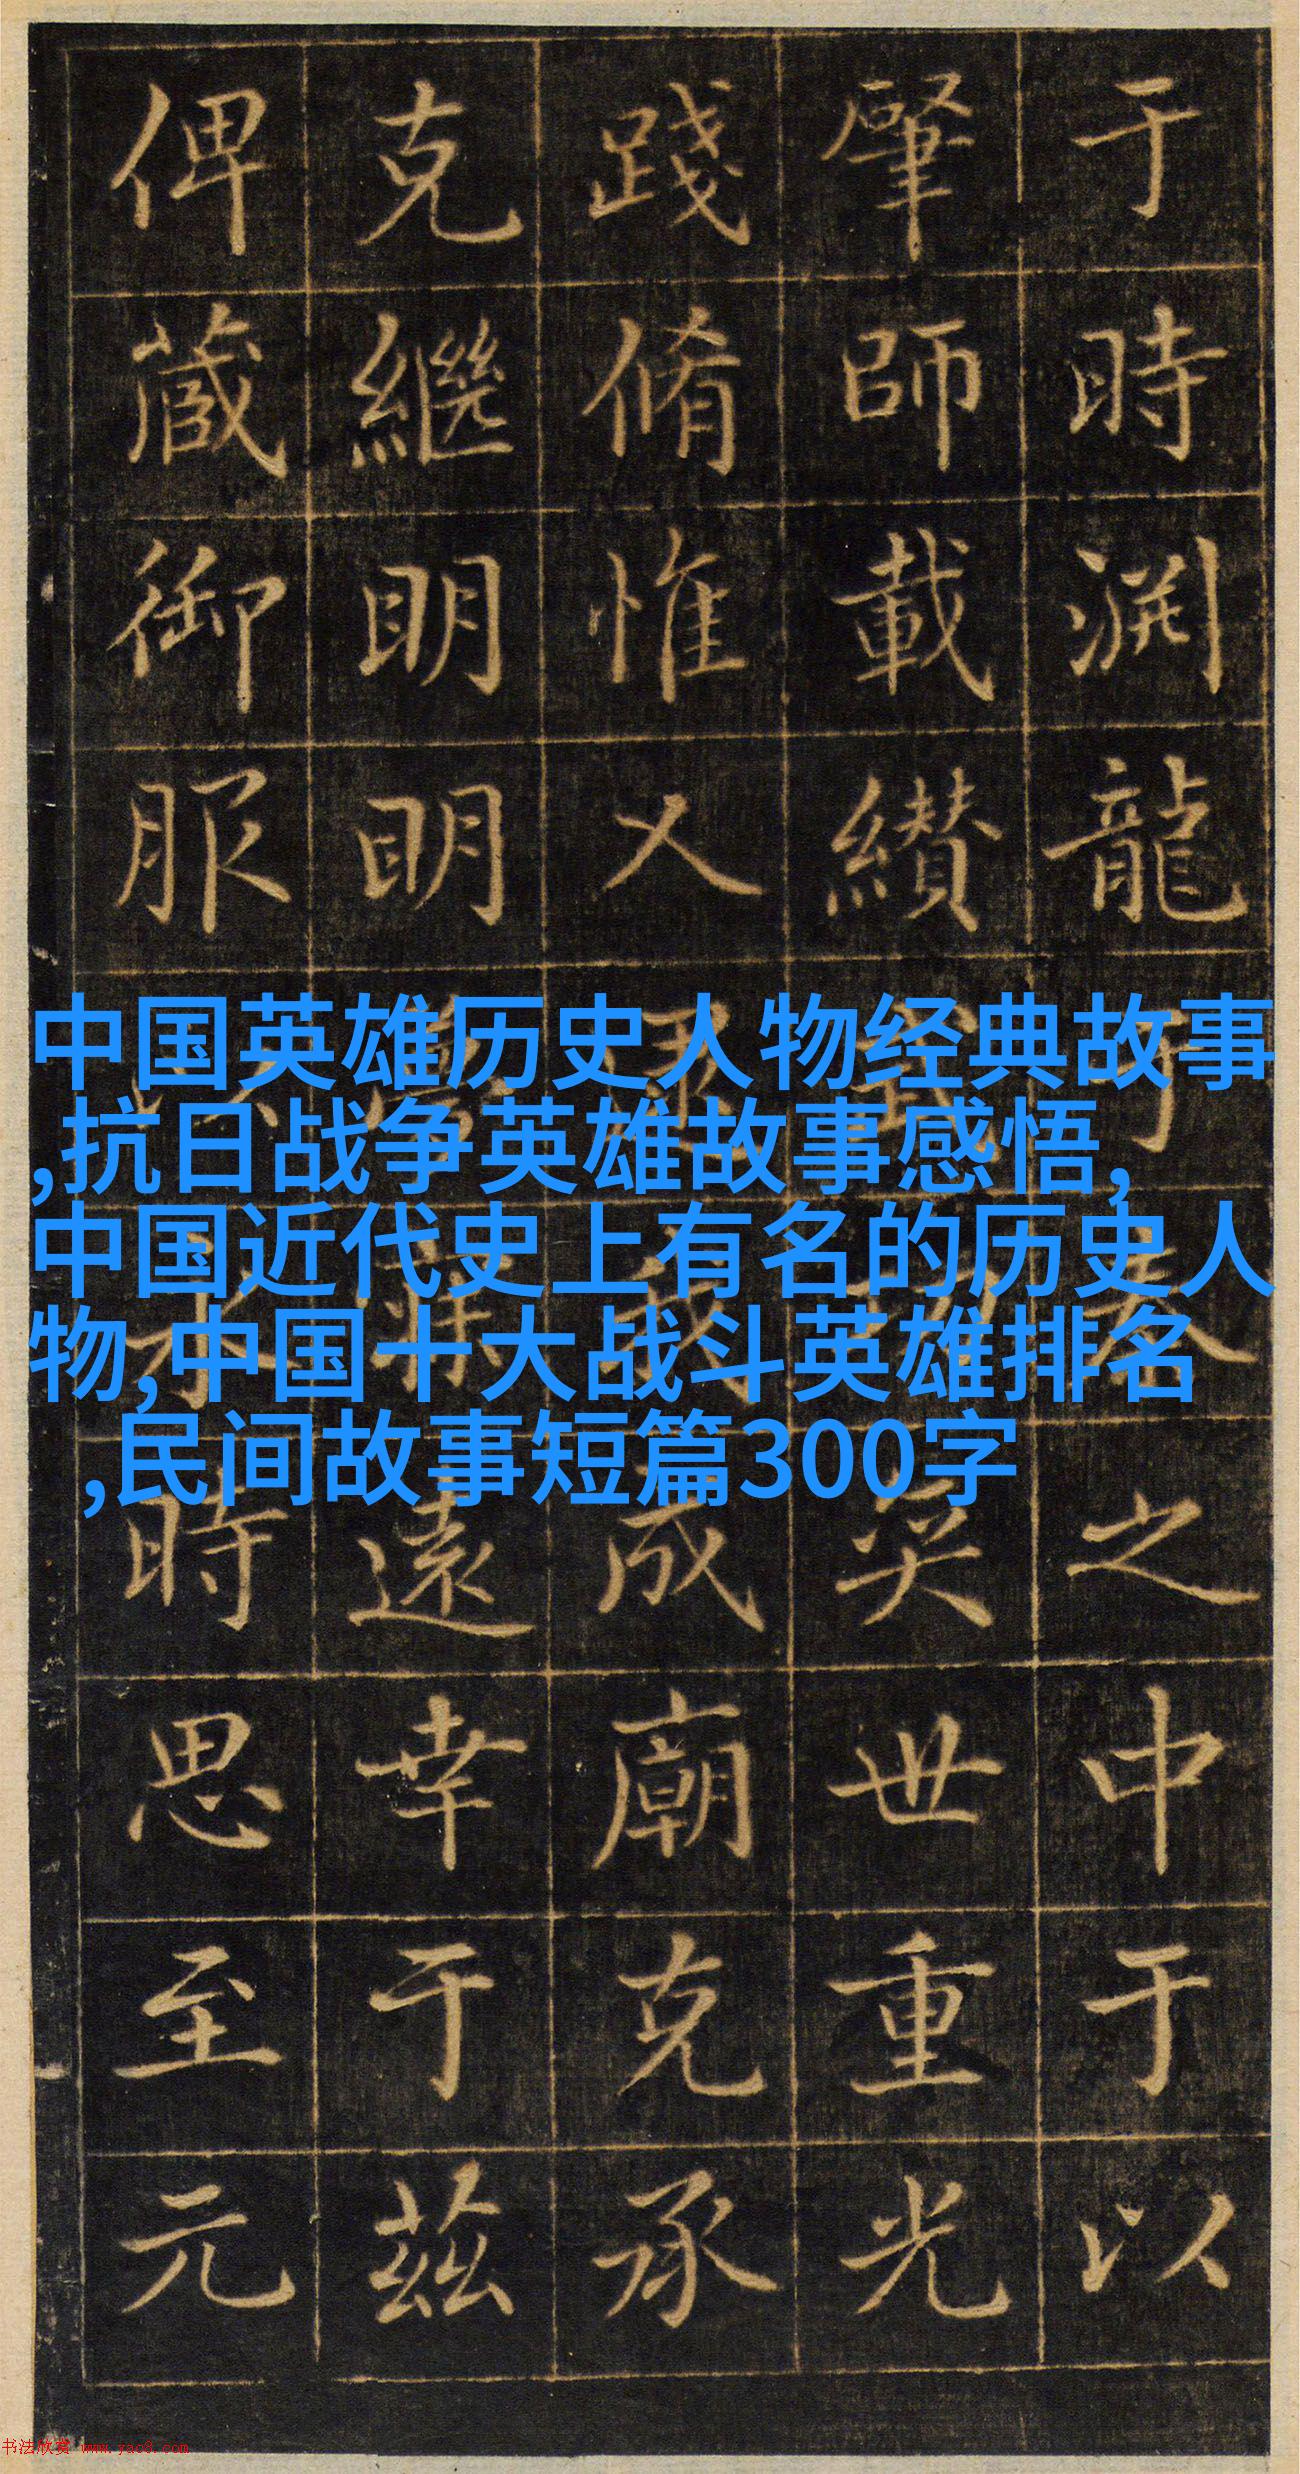 于時渊龍之中于以
肇師載纘奕世重光
踐脩惟人成廟克承
克繼明明遠幸于茲
俾蔵御服時思至元
中国英雄历史人物经典故事
,抗日战争英雄故事感悟,
中国近代史上有名的历史人
物,中国十大战斗英雄排名
,民间故事短篇300字
书法欣赏 www.yac8.com